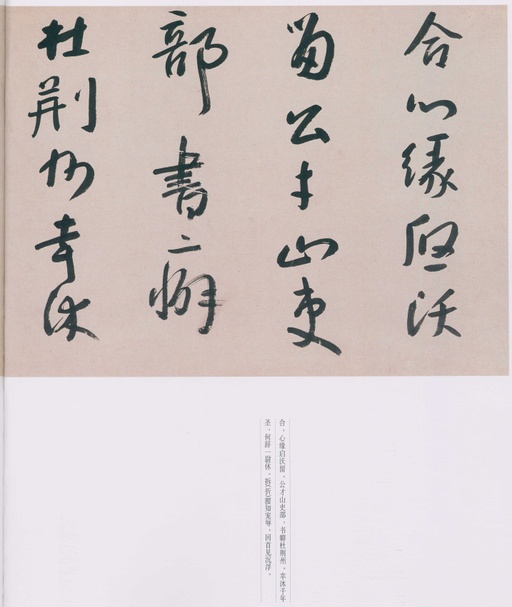 合心緣啟沃
留公才山吏
部書癖
杜荊州幸沐
合，心缘启沃留，公才山吏部，书癖杜荆州，幸沐千年
圣，何辞一尉休，拆(折)腰知宠辱，回首见沉浮。